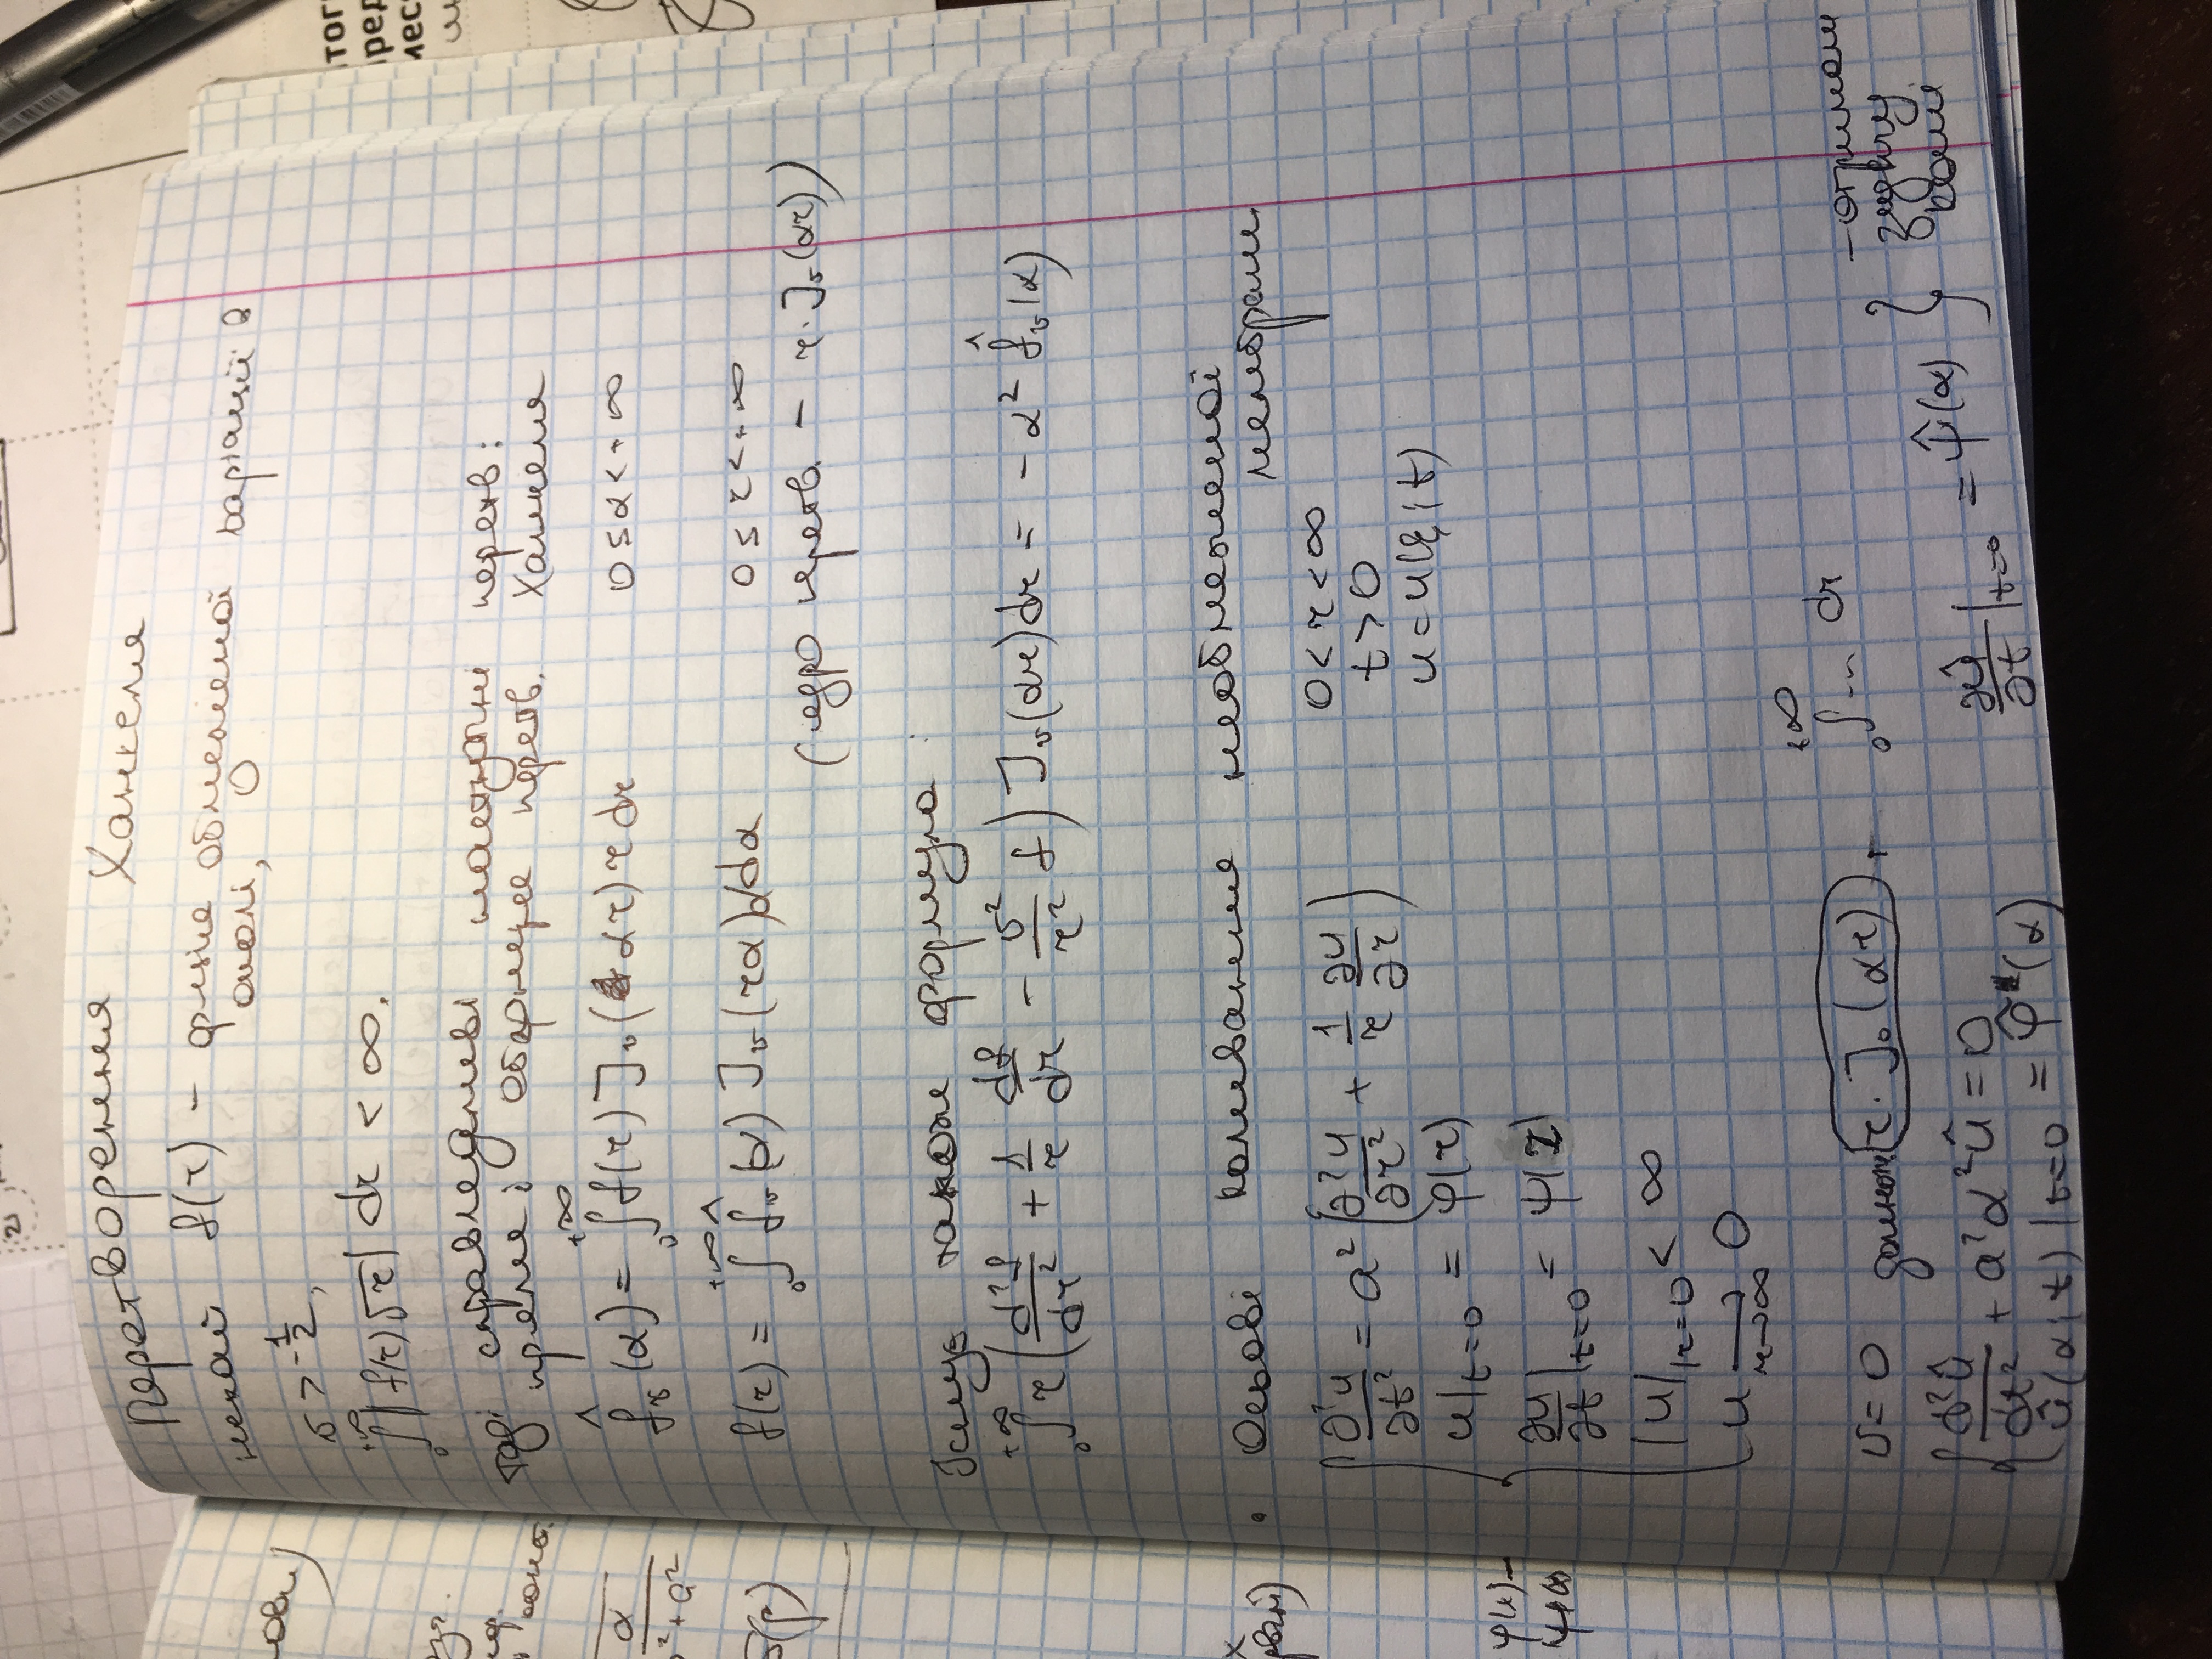 Перетворення Ханкеля
нехай f(r) – функція обмеженої варіації в
околі, 0
υ > -1/2,
∫₀^{+∞} |f(r)√r| dr < ∞.
тоді справедливі наступні перетв:
пряме і обернене перетв. Ханкеля
f̂_υ(α) = ∫₀^{+∞} f(r) J_υ(αr) r dr 0 ≤ α < +∞
f(r) = ∫₀^{+∞} f̂_υ(α) J_υ(rα) α dα 0 ≤ r < +∞
(ядро перетв. – r·J_υ(αr))
Існує також формула:
∫₀^{+∞} r (d²f/dr² + 1/r df/dr – υ²/r² f) J_υ(αr) dr = – α² f̂_υ(α)
• Осьові коливання необмеженої
мембрани
∂²u/∂t² = a² (∂²u/∂r² + 1/r ∂u/∂r) 0 < r < ∞
t > 0
u|t=0 = φ(r) u = u(r; t)
∂u/∂t|t=0 = ψ(r)
|u||r=0 < ∞
u → 0 r→∞
υ = 0 домнож. r·J₀(αr), ∫₀^{+∞} ... dr
d²û/dt² + a²α²û = 0 ∂û/∂t|t=0 = ψ̂(α) } – отримали
задачу
Коші
û(α; t)|t=0 = φ̂(α)
ови)
α
²+a²
φ(x) –
тог
ред
мес
21